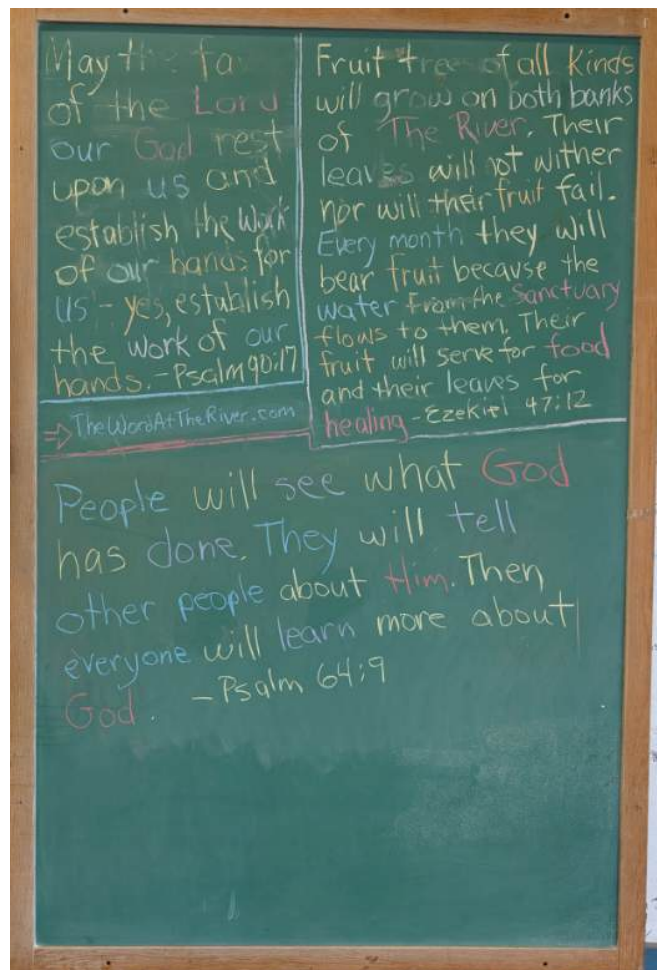 May the fa
of the Lord
our God rest
upon us and
establish the work
of our hands for
us - yes, establish
the work of our
hands. - Psalm 90:17
Fruit trees of all kinds
will grow on both banks
of The River. Their
leaves will not wither
nor will their fruit fail.
Every month they will
bear fruit because the
water from the Sanctuary
flows to them. Their
fruit will serve for food
and their leaves for
healing - Ezekiel 47:12
⇒ TheWordAtTheRiver.com
People will see what God
has done. They will tell
other people about Him. Then
everyone will learn more about
God. - Psalm 64:9